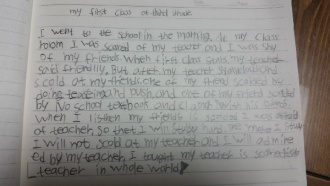 my first class of third grade
I went to the school in the morning. In my class
room I was scared of my teacher and I was shy
of my friends. When first class starts my teacher
said friendly, But after my teacher
scold at my friends. one of my friend scared by
and push and one of my friend scolded
by No school textbook and which is
when I listen my friends is scolded I was afraid
of teacher, So that, I will study hard
I will not scold at my teacher and I will admire
ed by my teacher, I taught my teacher is scariest
teacher in whole world